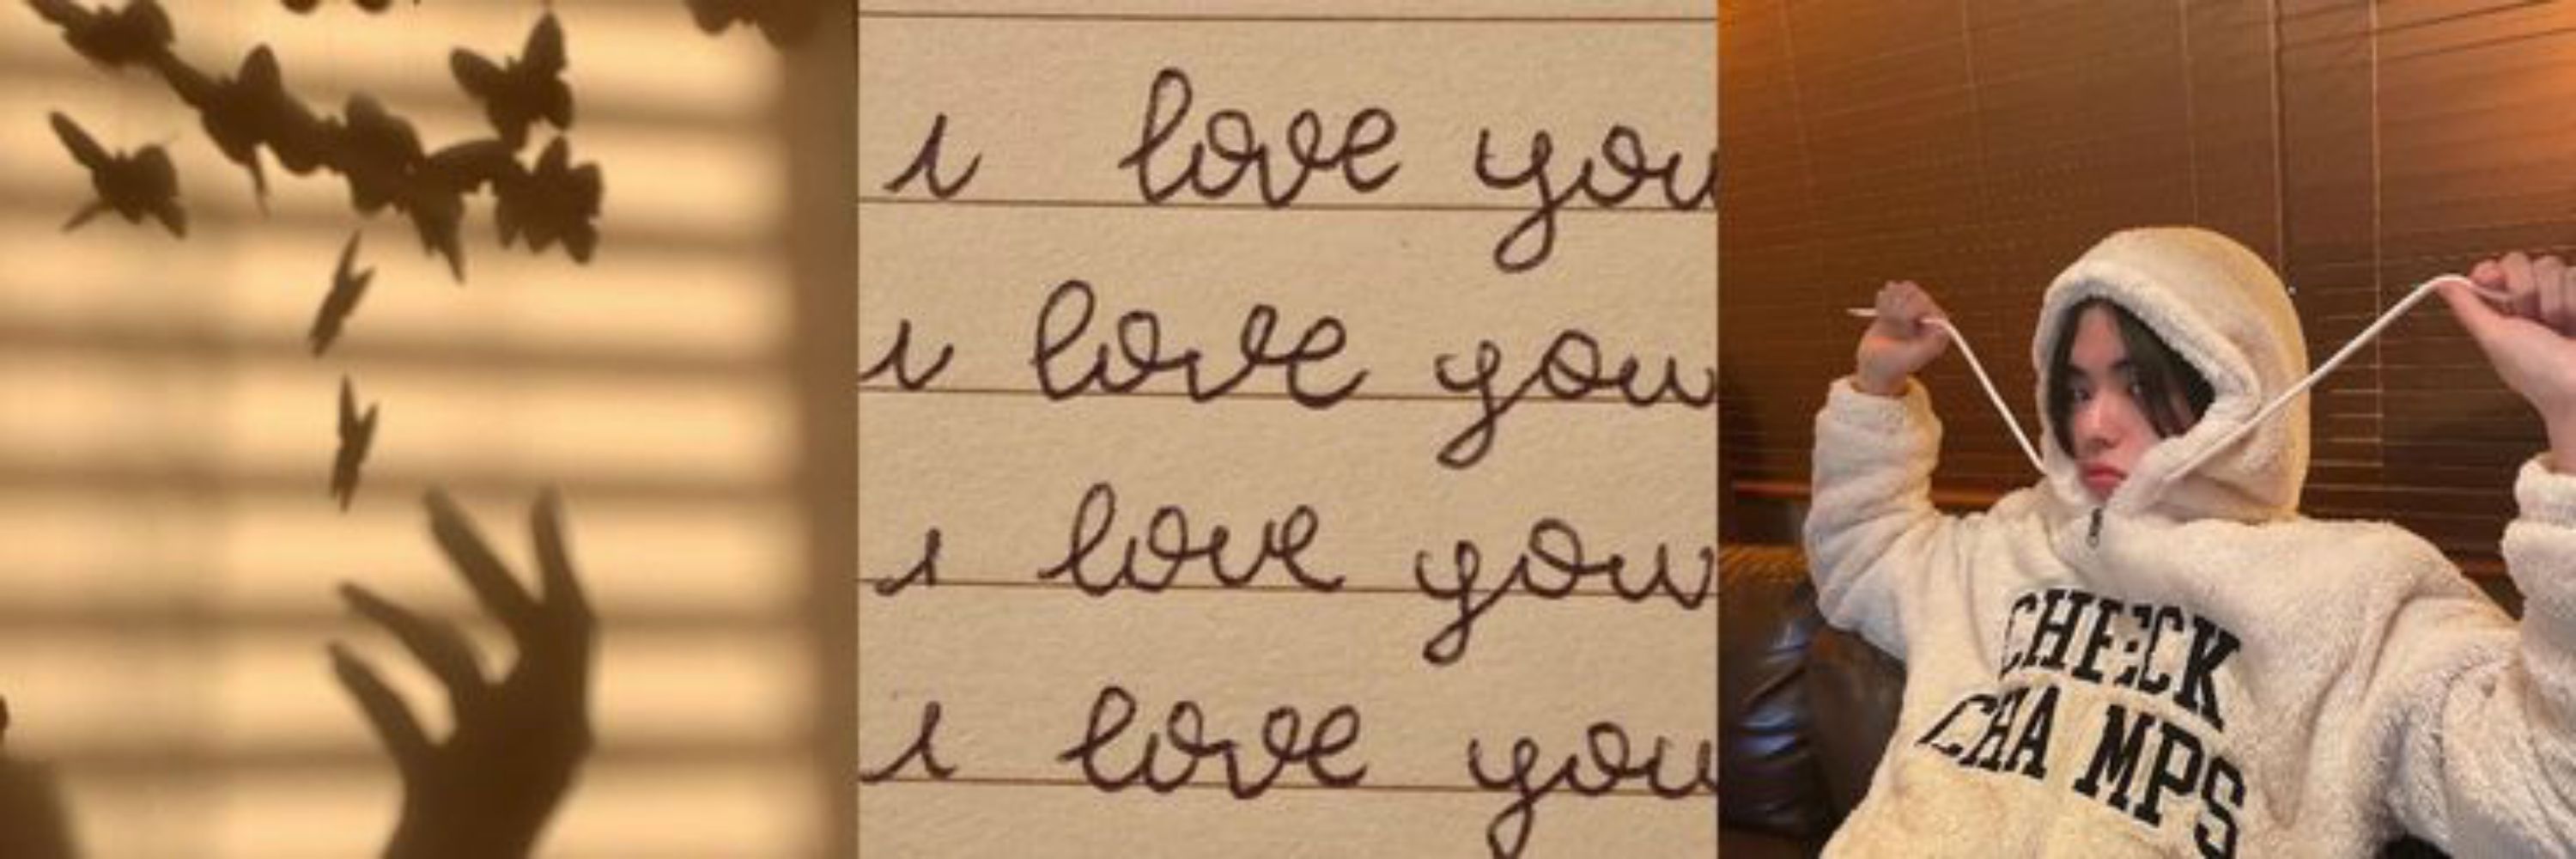 i love you
i love you
i love you
i love you
CHECK
CHAMPS